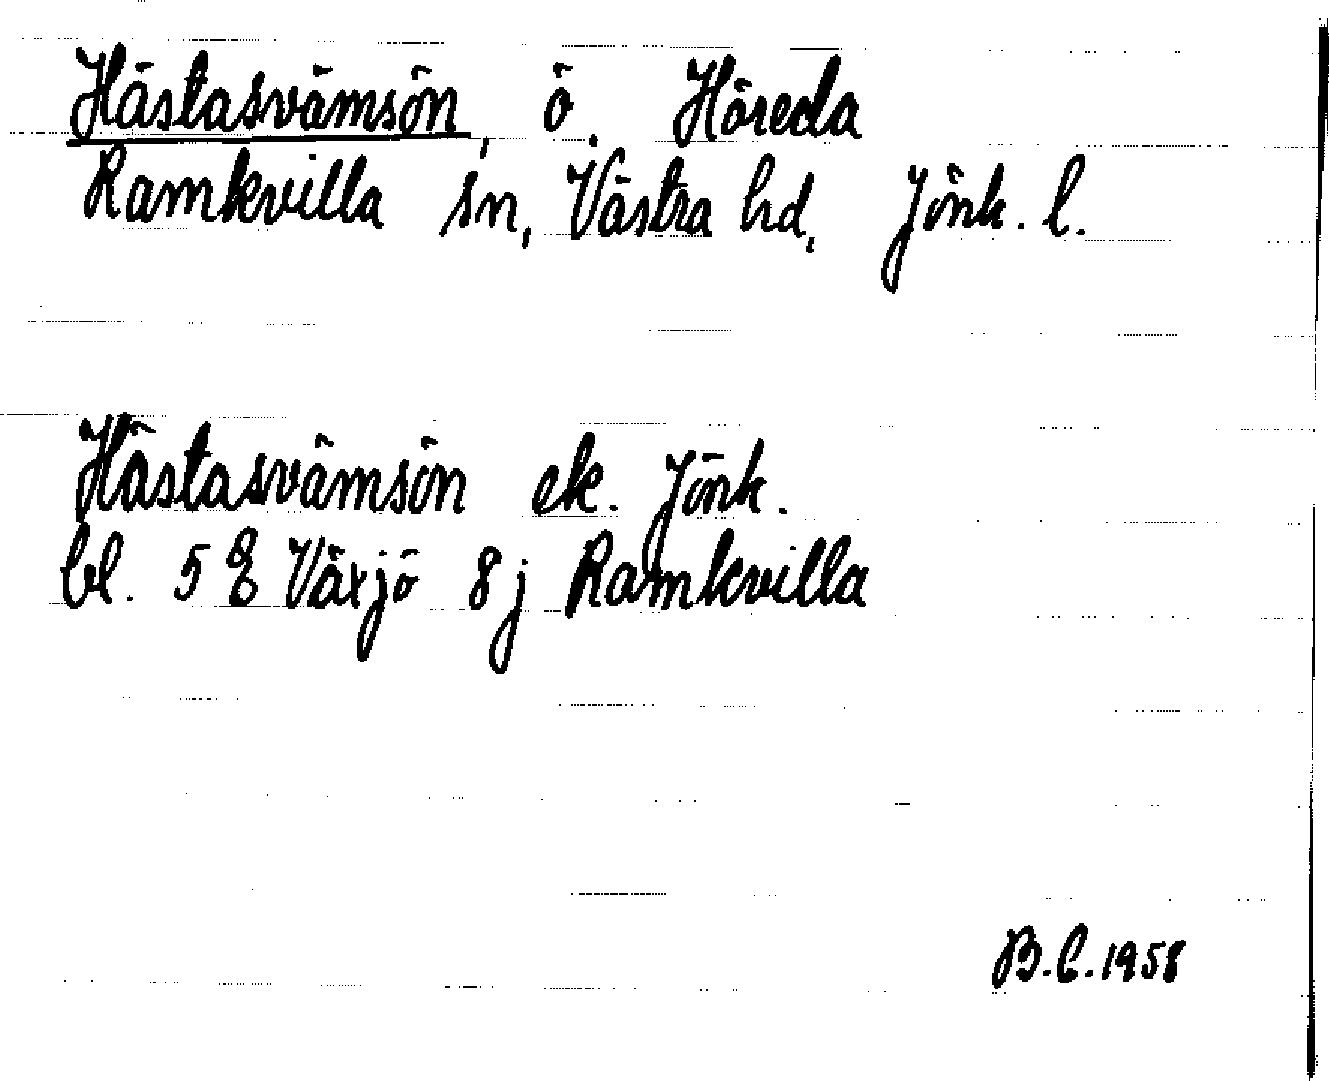 Hästasvämsön, ö. Höreda
Ramkvilla sn, Västra hd, Jönk. l.
Hästasvämsön ek. Jönk.
bl. 5 E Växjö 8 j Ramkvilla
B.C. 1958